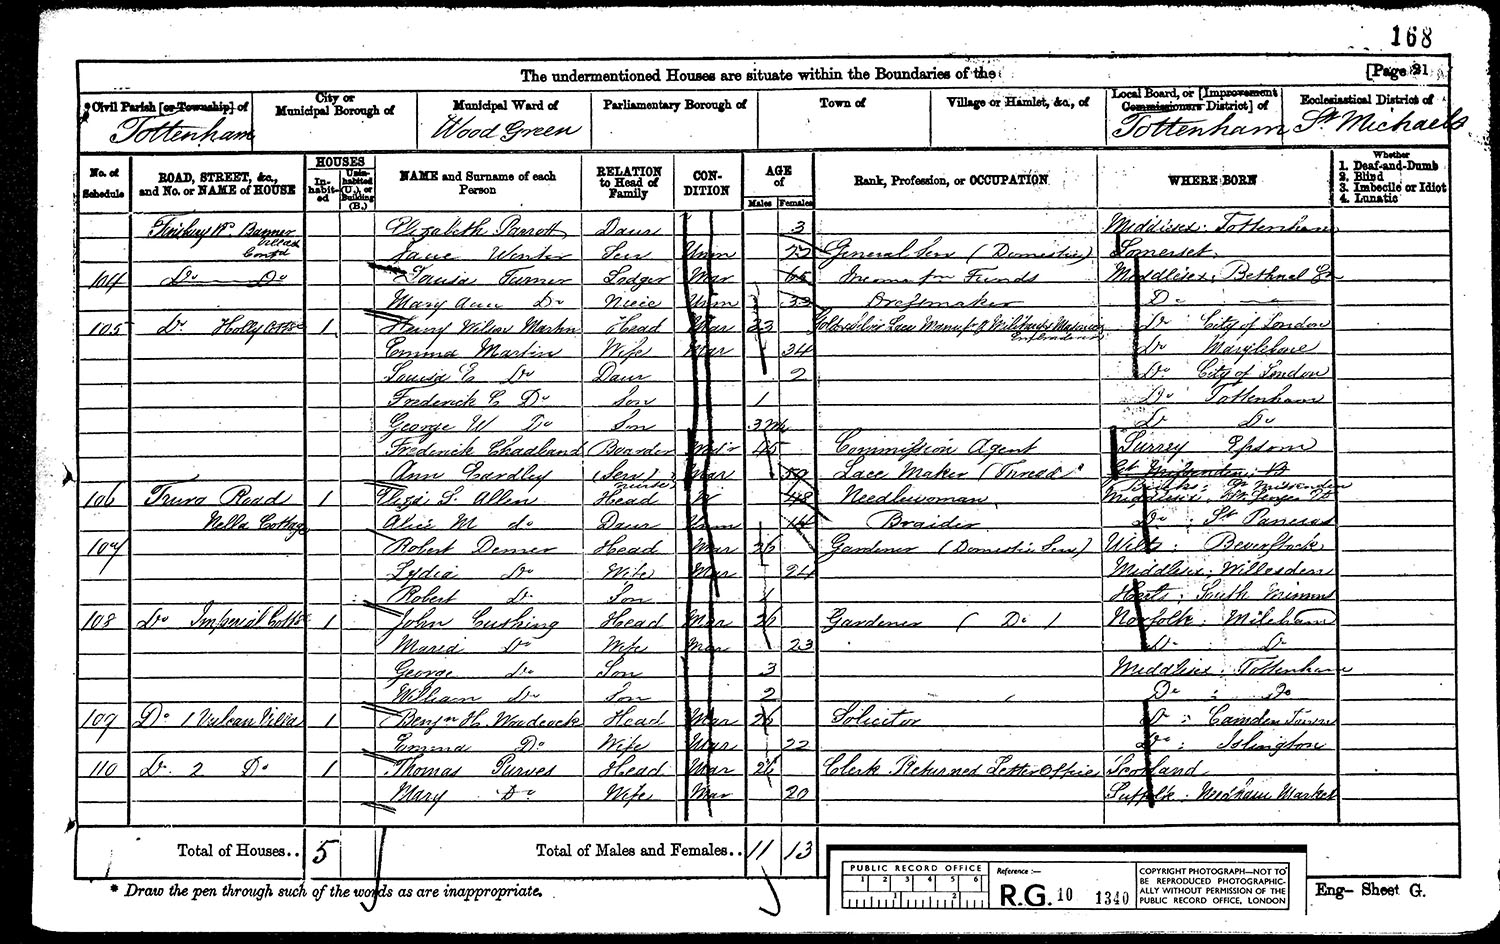 168
The undermentioned Houses are situate within the Boundaries of the
[Page 21
Civil Parish [or Township] of
City or Municipal Borough of
Municipal Ward of
Parliamentary Borough of
Town of
Village or Hamlet, &c., of
Local Board, or [Improvement Commissioners District] of
Ecclesiastical District of
Tottenham Wood Green Tottenham St Michaels
No. of Schedule
ROAD, STREET, &c., and No. or NAME of HOUSE
HOUSES
Inhabited
Uninhabited (U.), or Building (B.)
NAME and Surname of each Person
RELATION to Head of Family
CONDITION
AGE of
Males Females
Rank, Profession, or OCCUPATION
WHERE BORN
Whether
1. Deaf-and-Dumb
2. Blind
3. Imbecile or Idiot
4. Lunatic
Elizabeth Parrott Daur 3 Middlesex: Tottenham
Contd
Jane Winter Serv Unm 22 General Serv (Domestic) Somerset
104 Do Do Louisa Turner Lodger Mar 65 Income fm Funds Middlesex: Bethnal Gn
Mary Ann Do Niece Unm 33 Do
105 Do Holly 1 Henry Martin Head Mar 33 Lace Do City of London
Emma Martin Wife Mar 34 Do Marylebone
Louisa E Do Daur 2 Do City of London
Frederick C Do Son 1 Do Tottenham
George W Do Son 3m Do Do
Frederick Chadband Boarder 45 Commission Agent Surrey Epsom
Ann Eardley (Serv) Nurse Mar 50 Lace Maker (Thread)
Bucks: Gt Missenden
106 Truro Road 1 S. Allen Head W 48 Needlewoman Middlesex:
Nella Cottage Alice M do Daur Unm 14 Braider Do: St Pancras
107 Robert Head Mar 26 Gardener (Domestic Serv) Wilts:
Lydia Do Wife Mar 24 Middlesex: Willesden
Robert Do Son 1 Herts: South Mimms
108 Do Imperial 1 John Cushing Head Mar 26 Gardener (Do) Norfolk: Mileham
Maria Do Wife Mar 23 Do Do
George Do Son 3 Middlesex: Tottenham
William Do Son 2 Do: Do
109 Do 1 Vulcan Villa 1 Benjn H. Woodcock Head Mar 26 Solicitor Do: Camden Town
Emma Do Wife Mar 22 Do: Islington
110 Do 2 Do 1 Thomas Purves Head Mar 26 Clerk Returned Letter Office Scotland
Mary Do Wife Mar 20 Suffolk: Market
Total of Houses.. 5
Total of Males and Females.. 11 13
* Draw the pen through such of the words as are inappropriate.
Eng– Sheet G.
PUBLIC RECORD OFFICE
1 2 3 4 5 6
1 2
Reference :—
R.G. 10 1340
COPYRIGHT PHOTOGRAPH—NOT TO BE REPRODUCED PHOTOGRAPHICALLY WITHOUT PERMISSION OF THE PUBLIC RECORD OFFICE, LONDON